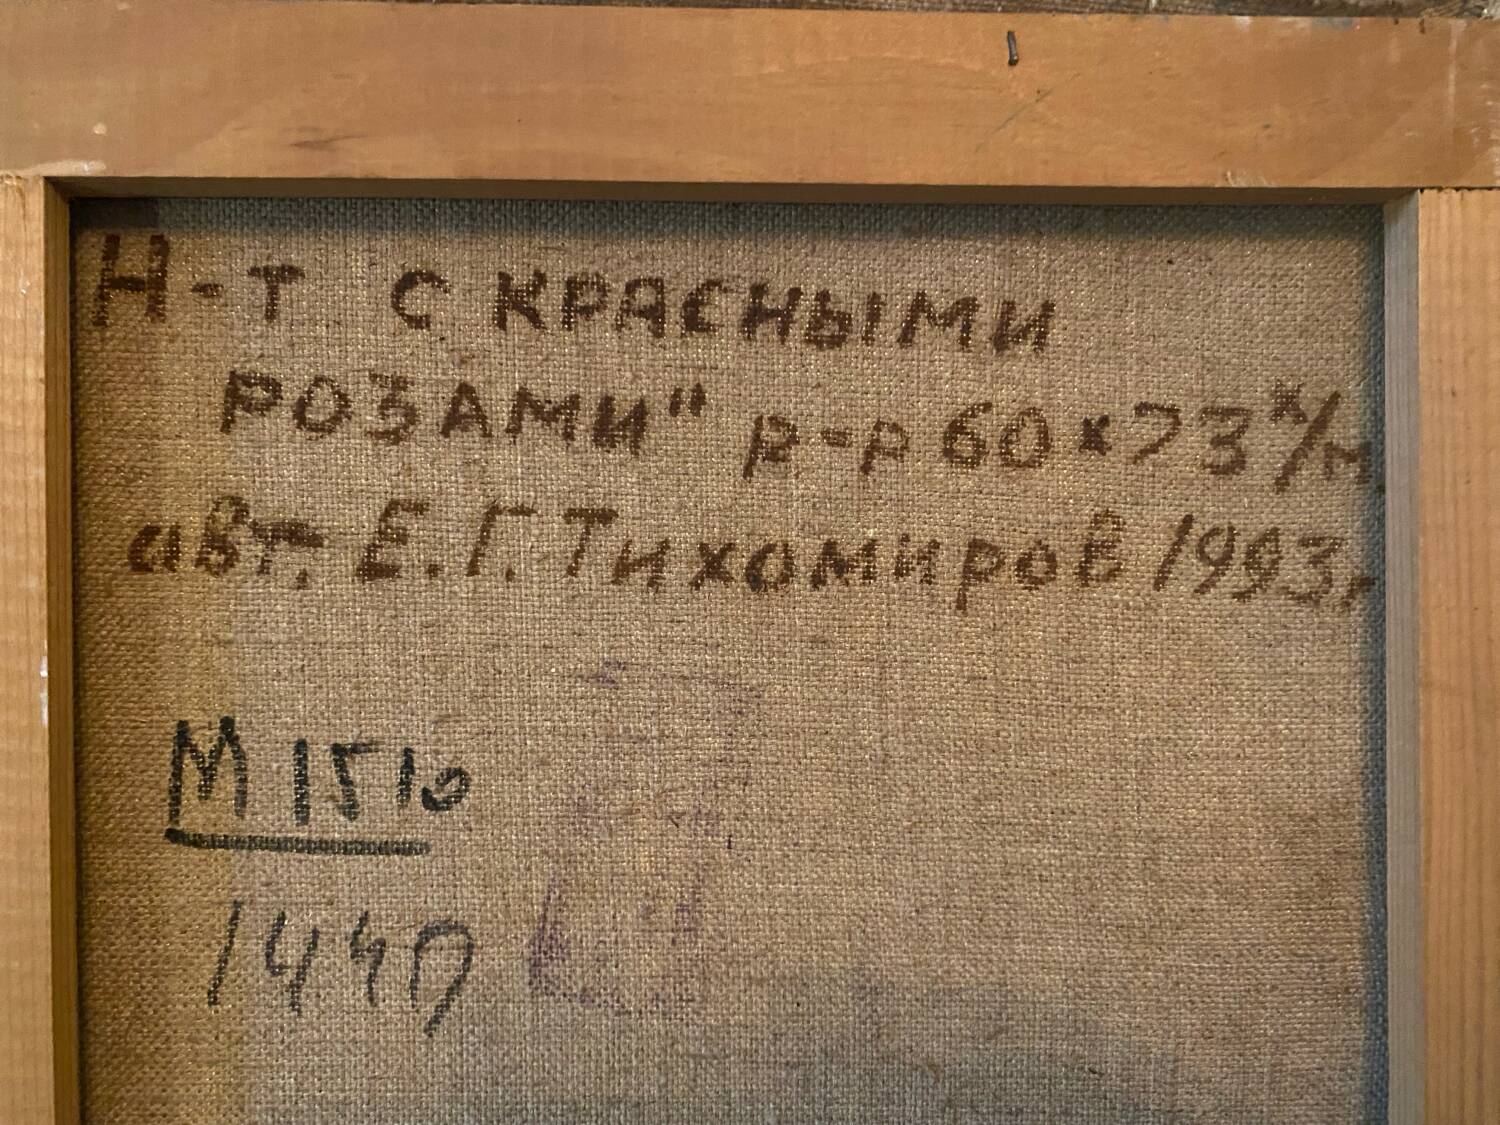 Н-т с красными
розами" р-р 60×73 х/м
авт. Е.Г. Тихомиров 1993г
М 1510
1440